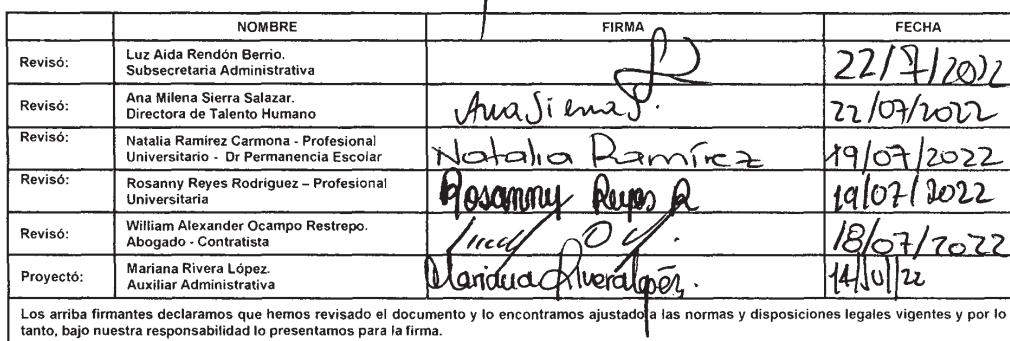 NOMBRE FIRMA FECHA
Revisó: Luz Aida Rendón Berrio.
Subsecretaria Administrativa
22/7/2022
Revisó: Ana Milena Sierra Salazar.
Directora de Talento Humano
Ana Sierra S.
22/07/2022
Revisó: Natalia Ramírez Carmona - Profesional
Universitario - Dr Permanencia Escolar
Natalia Ramírez
19/07/2022
Revisó: Rosanny Reyes Rodriguez – Profesional
Universitaria
Rosanny Reyes R
19/07/2022
Revisó: William Alexander Ocampo Restrepo.
Abogado - Contratista
18/07/2022
Proyectó: Mariana Rivera López.
Auxiliar Administrativa
Mariana Rivera López.
14/Jul/22
Los arriba firmantes declaramos que hemos revisado el documento y lo encontramos ajustado a las normas y disposiciones legales vigentes y por lo
tanto, bajo nuestra responsabilidad lo presentamos para la firma.